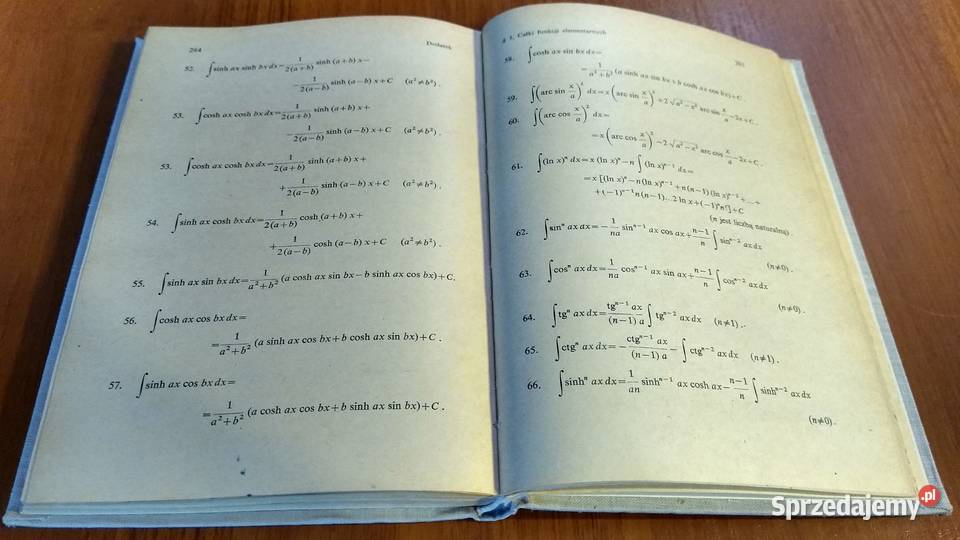 264 Dodatek
52. ∫sinh ax sinh bx dx = 1/2(a+b) sinh (a+b) x −
− 1/2(a−b) sinh (a−b) x + C (a² ≠ b²).
53. ∫cosh ax cosh bx dx = 1/2(a+b) sinh (a+b) x +
− 1/2(a−b) sinh (a−b) x + C (a² ≠ b²).
53. ∫cosh ax cosh bx dx = 1/2(a+b) sinh (a+b) x +
+ 1/2(a−b) sinh (a−b) x + C (a² ≠ b²).
54. ∫sinh ax cosh bx dx = 1/2(a+b) cosh (a+b) x +
+ 1/2(a−b) cosh (a−b) x + C (a² ≠ b²).
55. ∫sinh ax sin bx dx = 1/a²+b² (a cosh ax sin bx − b sinh ax cos bx) + C.
56. ∫cosh ax cos bx dx =
= 1/a²+b² (a sinh ax cos bx + b cosh ax sin bx) + C.
57. ∫sinh ax cos bx dx =
= 1/a²+b² (a cosh ax cos bx + b sinh ax sin bx) + C.
Całki funkcji elementarnych
58. ∫cosh ax sin bx dx =
= 1/a²+b² (a sinh ax sin bx + b cosh ax cos bx) + C
59. ∫(arc sin x/a)² dx = x (arc sin x/a)² + 2 √a²−x² arc sin x/a − 2x + C.
60. ∫(arc cos x/a)² dx =
= x (arc cos x/a)² − 2 √a²−x² arc cos x/a − 2x + C.
61. ∫(ln x)ⁿ dx = x (ln x)ⁿ − n ∫(ln x)ⁿ⁻¹ dx =
= x [(ln x)ⁿ − n (ln x)ⁿ⁻¹ + n(n−1) (ln x)ⁿ⁻² − ... +
+ (−1)ⁿ⁻¹ n(n−1)...2 ln x + (−1)ⁿ n!] + C
(n jest liczbą naturalną).
62. ∫sinⁿ ax dx = − 1/na sinⁿ⁻¹ ax cos ax + n−1/n ∫sinⁿ⁻² ax dx
(n≠0).
63. ∫cosⁿ ax dx = 1/na cosⁿ⁻¹ ax sin ax + n−1/n ∫cosⁿ⁻² ax dx
(n≠0).
64. ∫tgⁿ ax dx = tgⁿ⁻¹ ax/(n−1) a ∫tgⁿ⁻² ax dx (n≠1).
65. ∫ctgⁿ ax dx = − ctgⁿ⁻¹ ax/(n−1) a − ∫ctgⁿ⁻² ax dx (n≠1).
66. ∫sinhⁿ ax dx = 1/an sinhⁿ⁻¹ ax cosh ax − n−1/n ∫sinhⁿ⁻² ax dx
(n≠0).
Sprzedajemy.pl